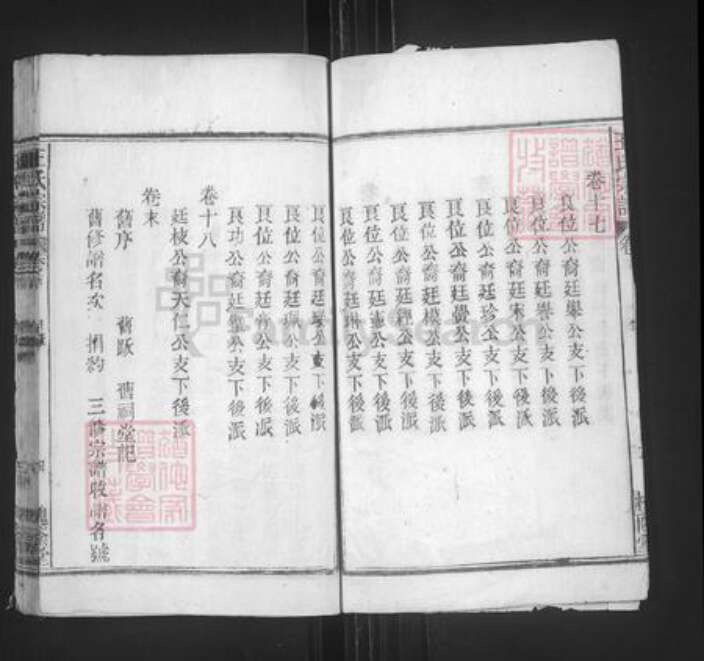 王氏宗譜
卷十七
良位公裔廷舉公支下後派
良位公裔廷譽公支下後派
良位公裔廷宋公支下後派
良位公裔廷珍公支下後派
良位公裔廷覺公支下後派
良位公裔廷模公支下後派
良位公裔廷經公支下後派
良位公裔廷憲公支下後派
良位公裔廷 公支下後派
良位公裔廷 公支下後派
良位公裔廷 公支下後派
良位公裔廷 公支下後派
良功公裔廷 公支下後派
卷十八
廷枝公裔天仁公支下後派
卷末
舊序 舊跋 舊祠堂記
舊修譜名次 捐約 三修宗譜收譜名號
王氏宗譜
FamilySearch